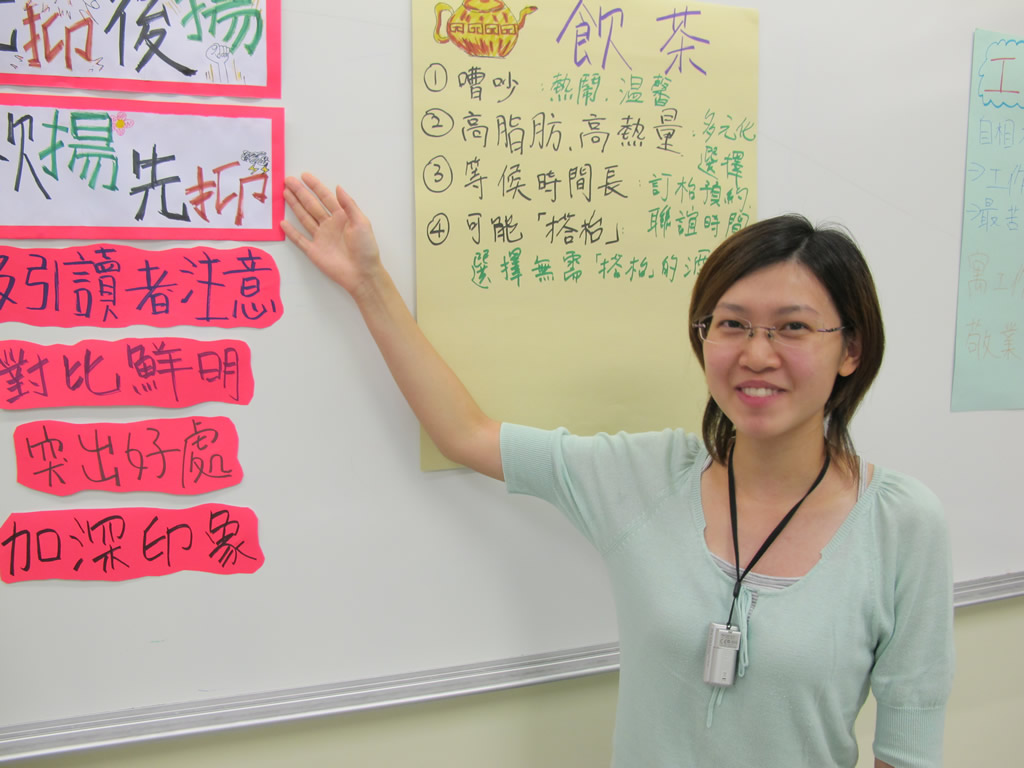 抑後揚
欲揚先抑
吸引讀者注意
對比鮮明
突出好處
加深印象
飲茶
① 嘈吵：熱鬧、温馨
② 高脂肪、高熱量：多元化選擇
③ 等候時間長：訂枱預約
④ 可能「搭枱」：聯誼時間
選擇無需「搭枱」的酒
工
自相
→工作
→最苦
寓工作
敬業